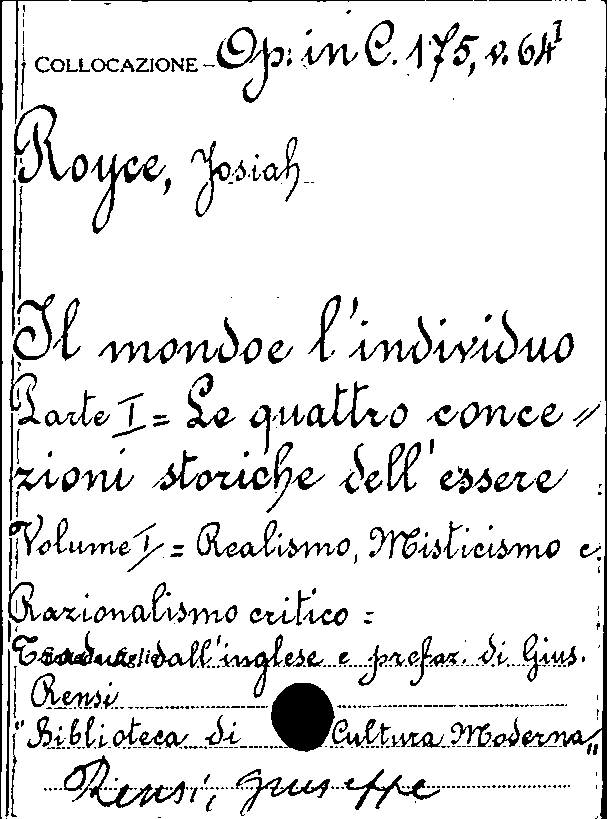 COLLOCAZIONE - Op. in C. 175, v. 64¹
Royce, Josiah
Il mondo e l'individuo
Parte I = Le quattro conce=
zioni storiche dell'essere
Volume I = Realismo, Misticismo e
Razionalismo critico =
Traduz. dall'inglese e prefaz. di Gius.
Rensi
"Biblioteca di Cultura Moderna"
Rensi, Giuseppe